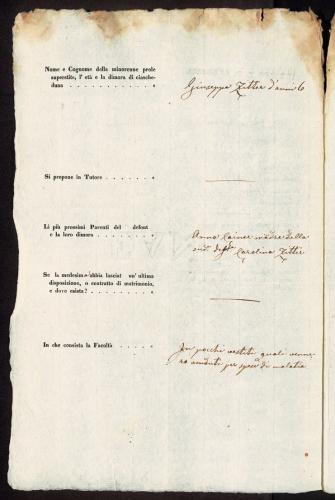 Nome e Cognome della minorenne prole
superstite, l' età e la dimora di ciasche-
duna . . . . . . . . . . . .
Giuseppa Zitter d'anni 6
Si propone in Tutore . . . . . . .
Li più prossimi Parenti del defont
e la loro dimora . . . . . . . .
Anna Cainer madre della
sud. defta Carolina Zitter
Se la medesima abbia lasciat un' ultima
disposizione, o contratto di matrimonio,
e dove esista? . . . . . . . . .
In che consista la Facoltà . . . . .
In pochi vestiti quali venne-
ro venduti per spese di malatia